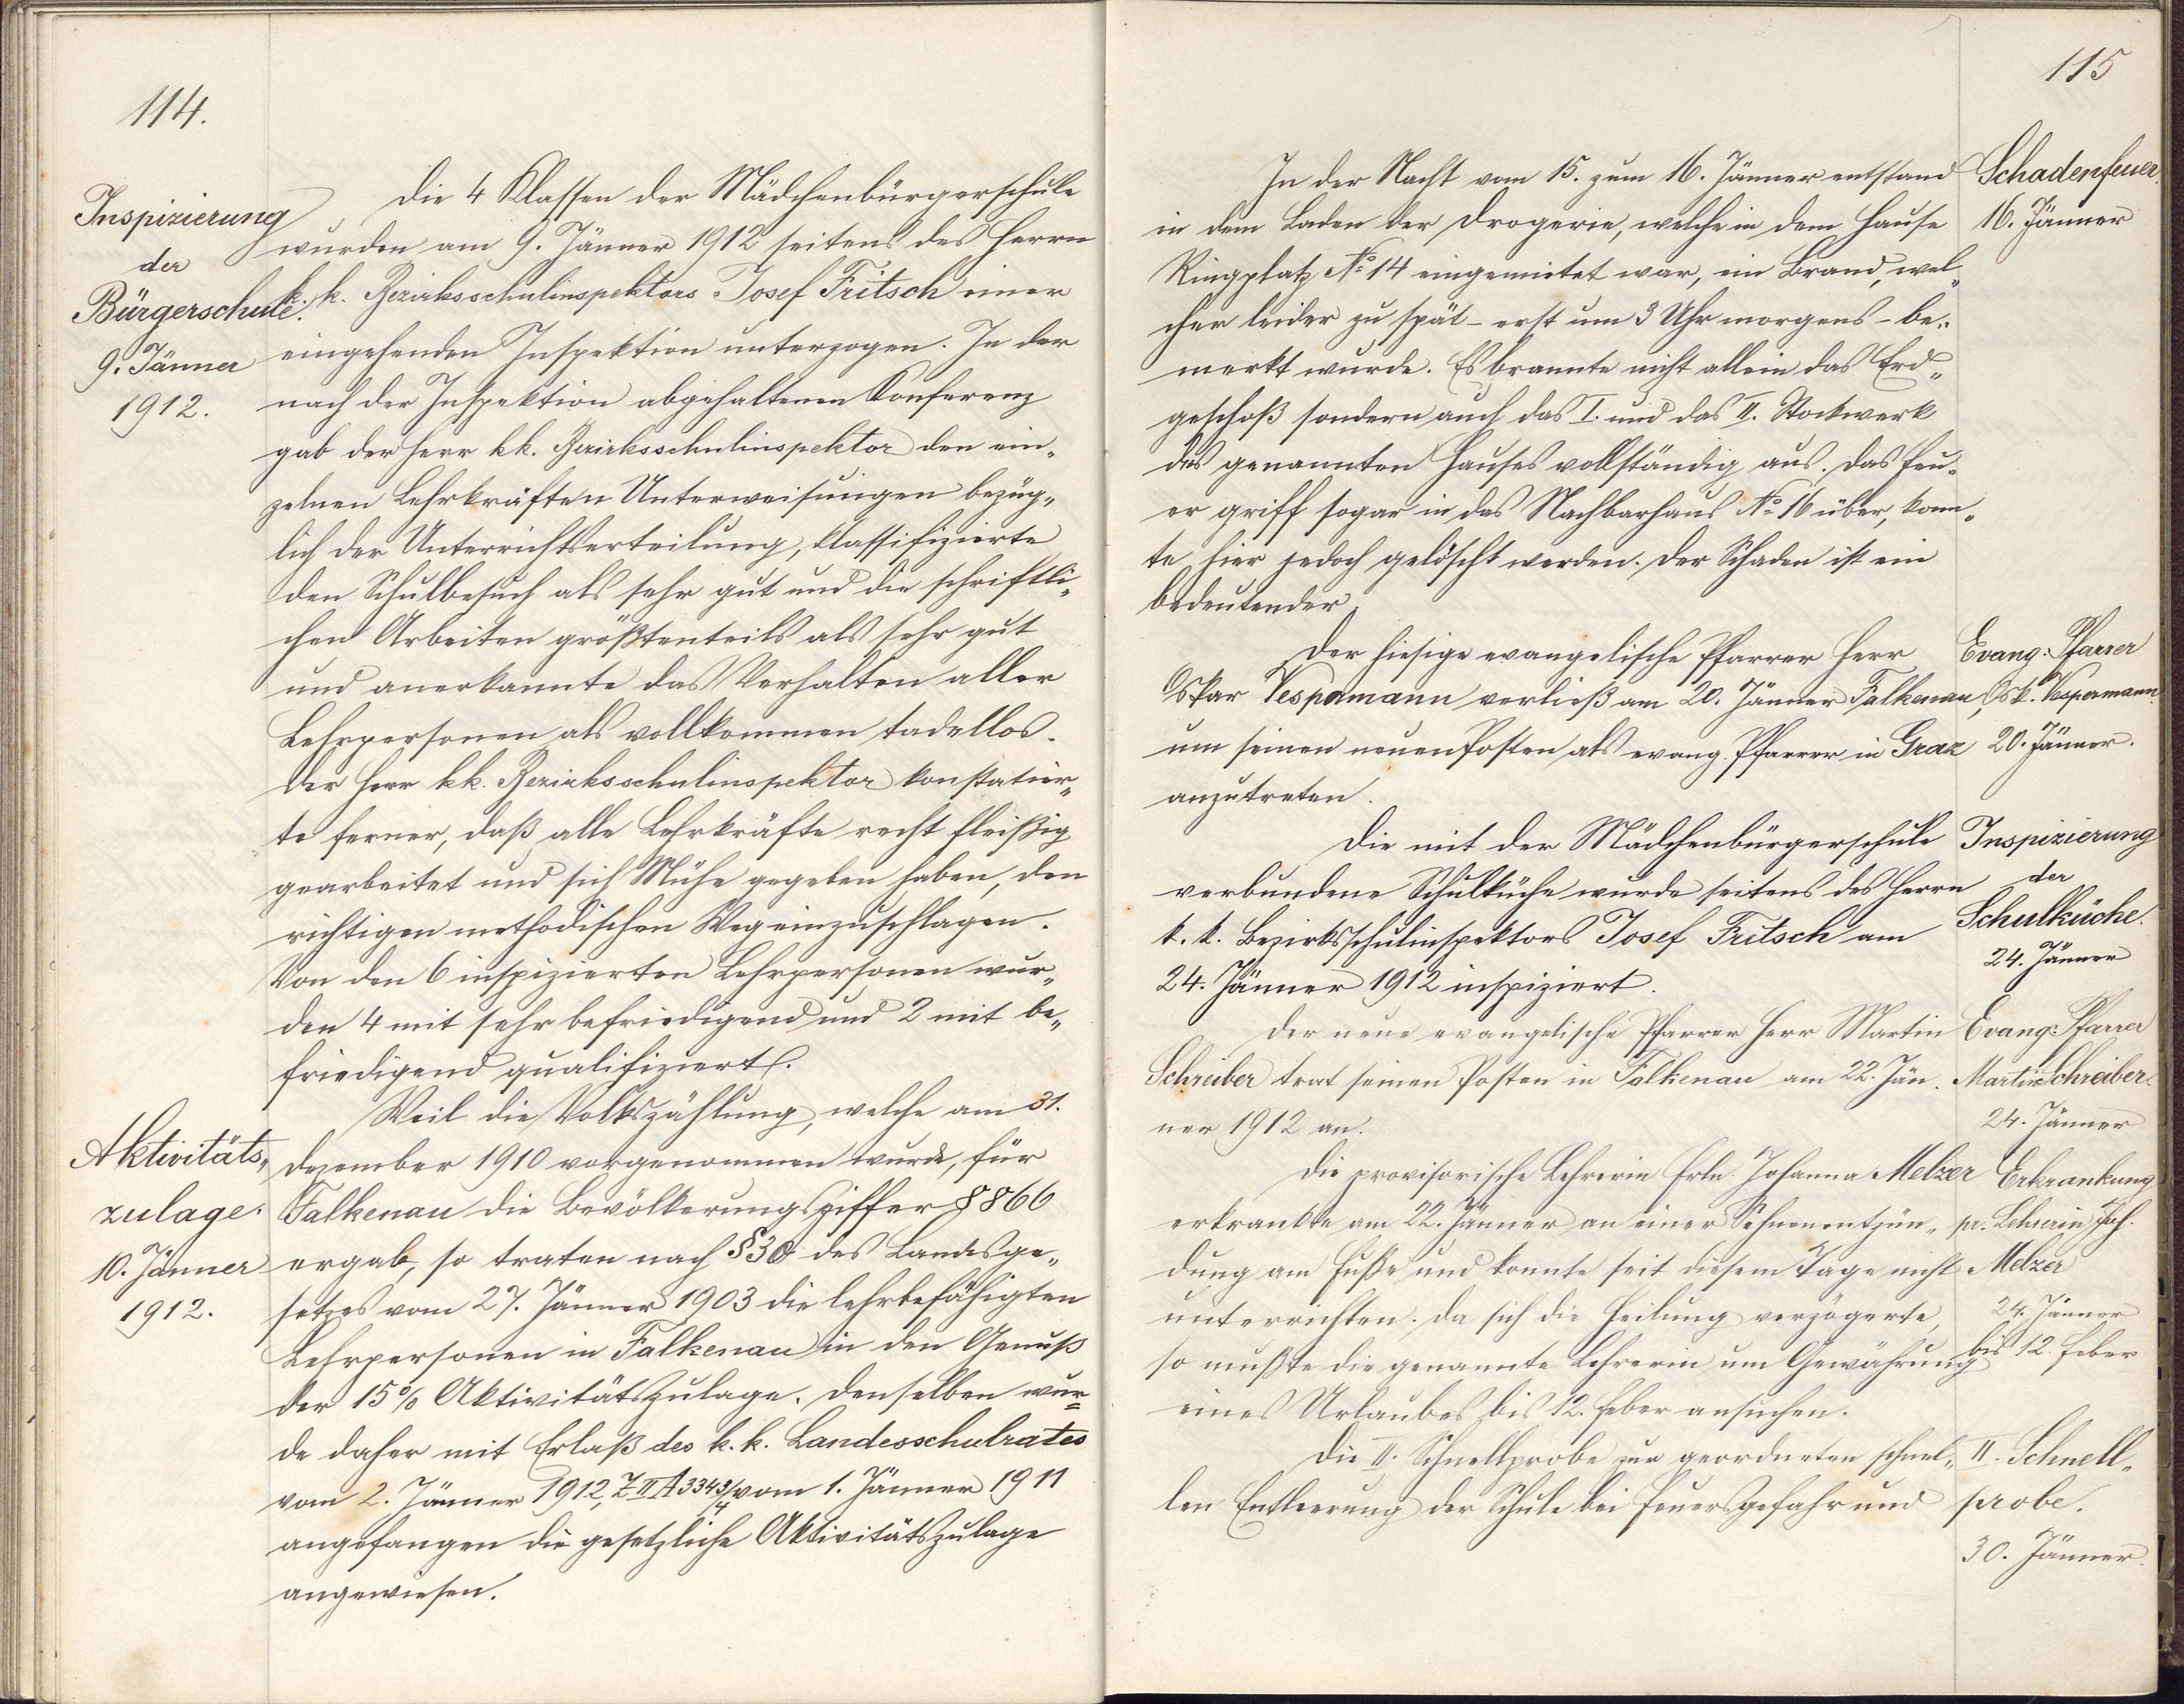 114.
Inspizierung
der
Bürgerschule.
9. Jänner
1912.
Die 4 Klassen der Mädchenbürgerschule
wurden am 9. Jänner 1912 seitens des Herrn
k. k. Bezirksschulinspektors Josef Fritsch einer
eingehenden Inspektion unterzogen. In der
nach der Inspektion abgehaltenen Konferenz
gab der Herr kk. Bezirksschulinspektor den ein„
zelnen Lehrkräften Unterweisungen bezüg„
lich der Unterrichtserteilung, klassifizierte
den Schulbesuch als sehr gut und die schriftli„
chen Arbeiten größtenteils als sehr gut
und anerkannte das Verhalten aller
Lehrpersonen als vollkommen tadellos.
Der Herr kk. Bezirksschulinspektor konstatier„
te ferner, daß alle Lehrkräfte recht fleißig
gearbeitet und sich Mühe gegeben haben, den
richtigen methodischen Weg einzuschlagen.
Von den 6 inspizierten Lehrpersonen wur„
den 4 mit sehr befriedigend und 2 mit be„
friedigend qualifiziert.
Aktivitäts„
zulage.
10. Jänner
1912.
Weil die Volkszählung, welche am 31.
Dezember 1910 vorgenommen wurde, für
Falkenau die Bevölkerungsziffer 8866
ergab, so traten nach § 30 des Landesge„
setzes vom 27. Jänner 1903 die lehrbefähigten
Lehrpersonen in Falkenau in den Genuß
der 15% Aktivitätszulage. Denselben wur„
de daher mit Erlaß des k. k. Landesschulrates
vom 2. Jänner 1912, Z II A 3343/4 vom 1. Jänner 1911
angefangen die gesetzliche Aktivitätszulage
angewiesen.
115
In der Nacht vom 15. zum 16. Jänner entstand
in dem Laden der Drogerie, welche in dem Hause
Ringplatz No 14 eingemietet war, ein Brand, wel„
cher leider zu spät - erst um 3 Uhr morgens - be„
merkt wurde. Es brannte nicht allein das Erd„
geschoß sondern auch das I. und das II. Stockwerk
des genannten Hauses vollständig aus. Das Feu„
er griff sogar in das Nachbarhaus No 16 über, konn„
te hier jedoch gelöscht werden. Der Schaden ist ein
bedeutender.
Schadenfeuer.
16. Jänner
Der hiesige evangelische Pfarrer Herr
Oskar Vespermann verließ am 20. Jänner Falkenau,
um seinen neuen Posten als evang. Pfarrer in Graz
anzutreten.
Evang. Pfarrer
Osk. Vespermann.
20. Jänner.
Die mit der Mädchenbürgerschule
verbundene Schulküche wurde seitens des Herrn
k. k. Bezirksschulinspektors Josef Fritsch am
24. Jänner 1912 inspiziert.
Inspizierung
der
Schulküche.
24. Jänner
Der neue evangelische Pfarrer Herr Martin
Schreiber trat seinen Posten in Falkenau am 22. Jän„
ner 1912 an.
Evang. Pfarrer
Martin Schreiber.
24. Jänner
Die provisorische Lehrerin Frln. Johanna Melzer
erkrankte am 22. Jänner an einer Sehnenentzün„
dung am Fuße und konnte seit diesem Tage nicht
unterrichten. Da sich die Heilung verzögerte,
so mußte die genannte Lehrerin um Gewährung
eines Urlaubes bis 12. Feber ansuchen.
Erkrankung
pr. Lehrerin Joh.
Melzer
24. Jänner
bis 12. Feber
Die II. Schnellprobe zur geordneten schnel„
len Entleerung der Schule bei Feuersgefahr und
II. Schnell„
probe.
30. Jänner.